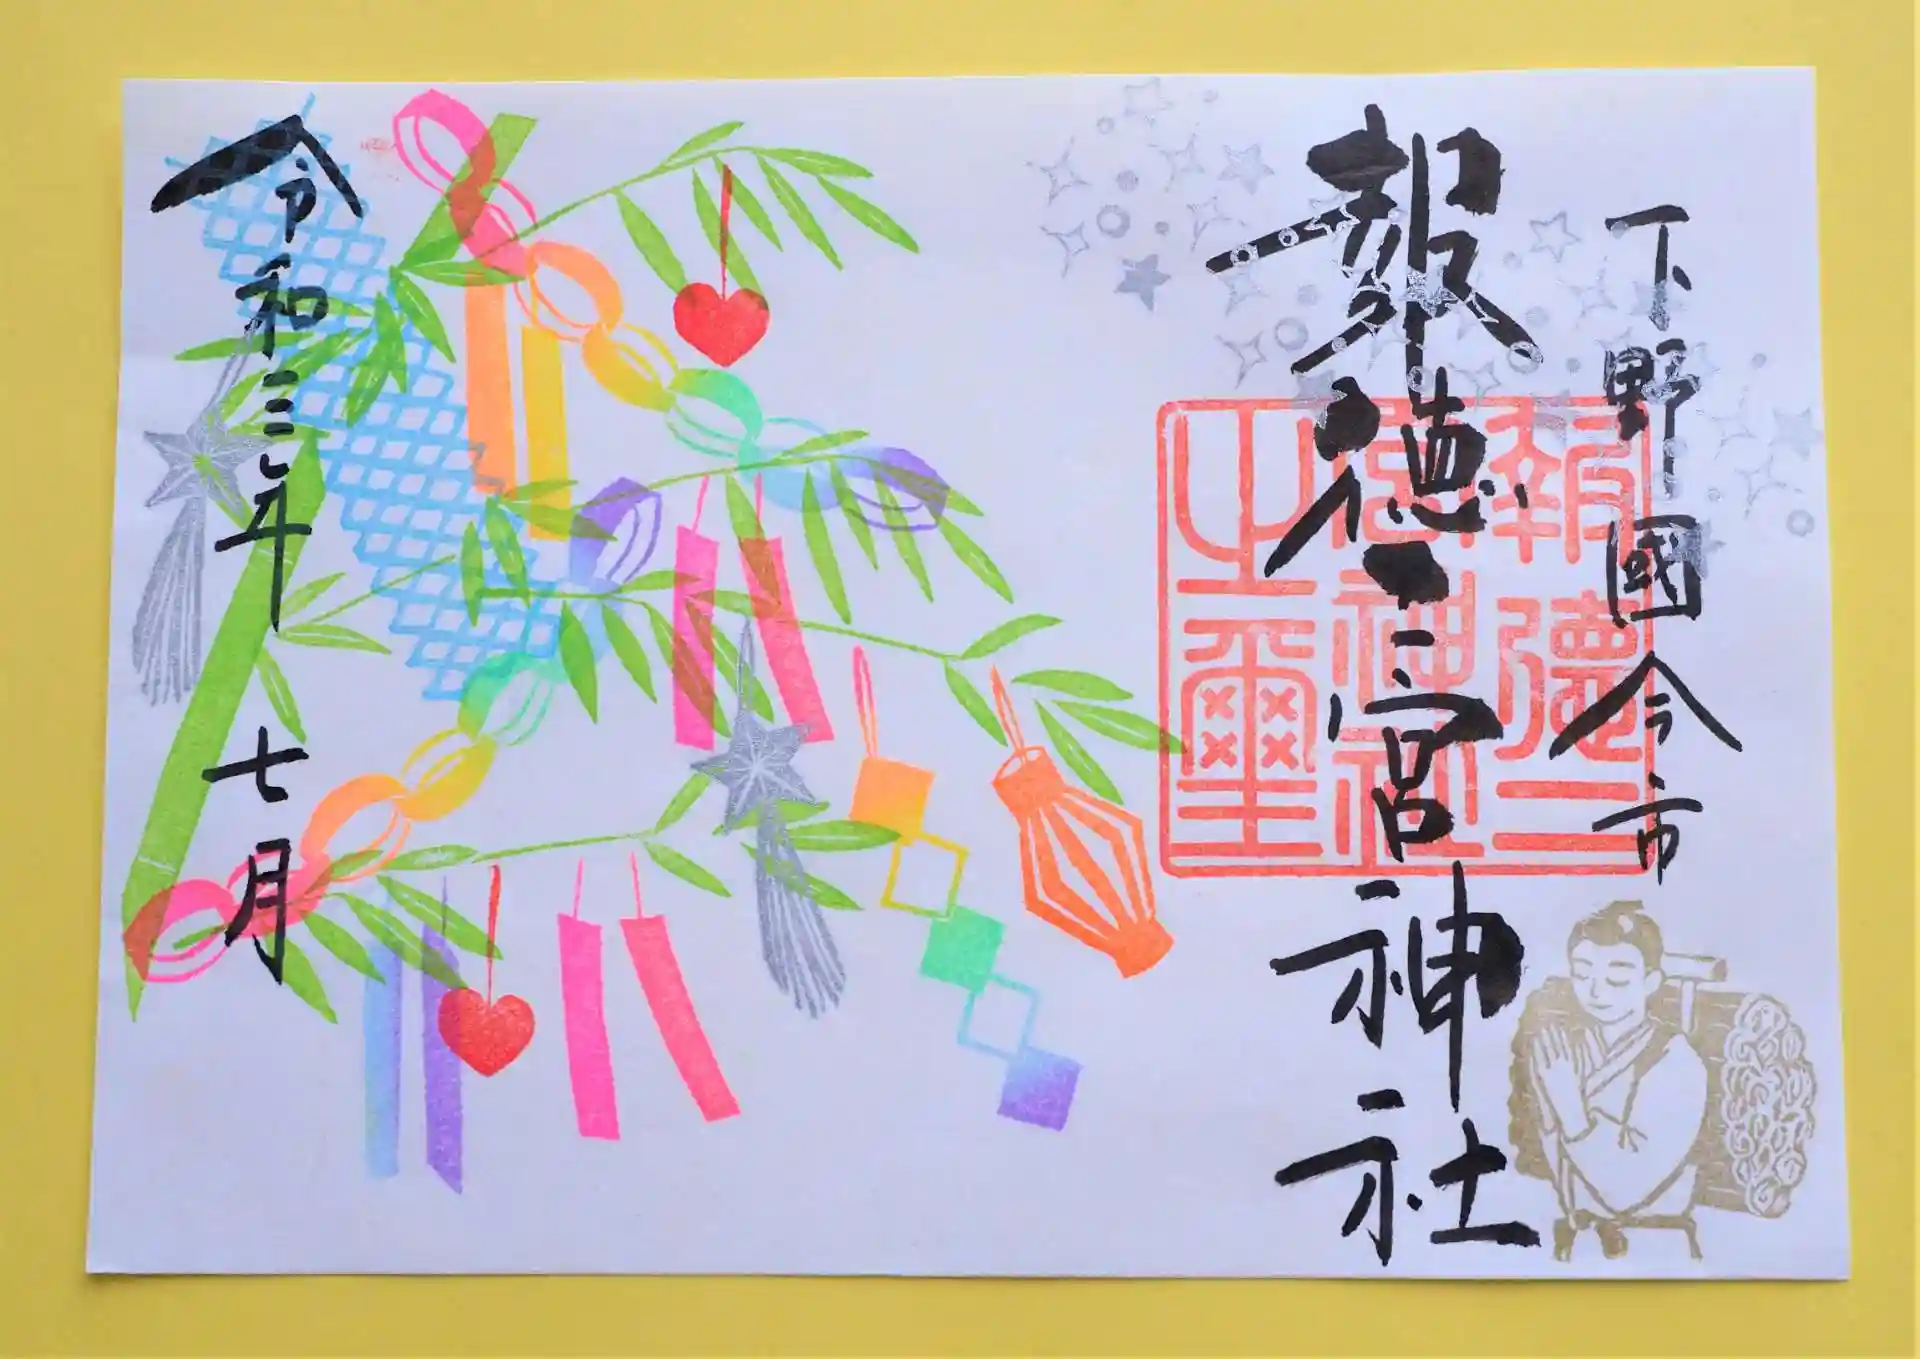 下野國今市
報徳二宮神社
報徳二
宮神社
之璽
令和三年 七月